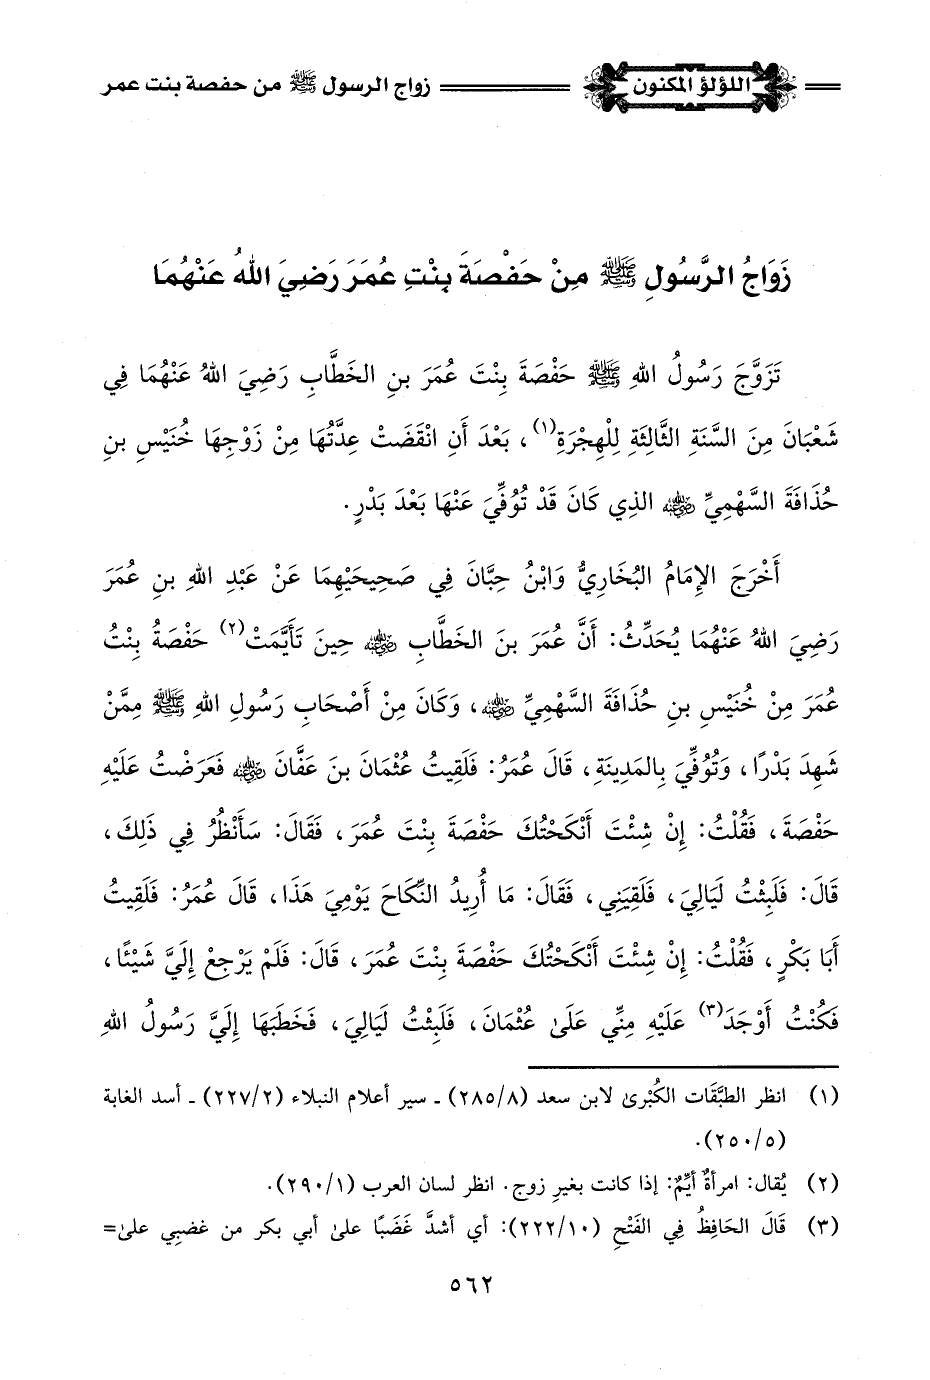 اللؤلؤ المكنون زواج الرسول ﷺ من حفصة بنت عمر
زَوَاجُ الرَّسُولِ ﷺ مِنْ حَفْصَةَ بِنْتِ عُمَرَ رَضِيَ اللهُ عَنْهُمَا
تَزَوَّجَ رَسُولُ اللهِ ﷺ حَفْصَةَ بِنْتَ عُمَرَ بنِ الخَطَّابِ رَضِيَ اللهُ عَنْهُمَا فِي
شَعْبَانَ مِنَ السَّنَةِ الثَّالِثَةِ لِلْهِجْرَةِ(١)، بَعْدَ أَنِ انْقَضَتْ عِدَّتُهَا مِنْ زَوْجِهَا خُنَيْسِ بنِ
حُذَافَةَ السَّهْمِيِّ رضي الله عنه الذِي كَانَ قَدْ تُوُفِّيَ عَنْهَا بَعْدَ بَدْرٍ.
أَخْرَجَ الإِمَامُ البُخَارِيُّ وَابْنُ حِبَّانَ فِي صَحِيحَيْهِمَا عَنْ عَبْدِ اللهِ بنِ عُمَرَ
رَضِيَ اللهُ عَنْهُمَا يُحَدِّثُ: أَنَّ عُمَرَ بنَ الخَطَّابِ رضي الله عنه حِينَ تَأَيَّمَتْ(٢) حَفْصَةُ بِنْتُ
عُمَرَ مِنْ خُنَيْسِ بنِ حُذَافَةَ السَّهْمِيِّ رضي الله عنه، وَكَانَ مِنْ أَصْحَابِ رَسُولِ اللهِ ﷺ مِمَّنْ
شَهِدَ بَدْرًا، وَتُوُفِّيَ بِالمَدِينَةِ، قَالَ عُمَرُ: فَلَقِيتُ عُثْمَانَ بنَ عَفَّانَ رضي الله عنه فَعَرَضْتُ عَلَيْهِ
حَفْصَةَ، فَقُلْتُ: إِنْ شِئْتَ أَنْكَحْتُكَ حَفْصَةَ بِنْتَ عُمَرَ، فَقَالَ: سَأَنْظُرُ فِي ذَلِكَ،
قَالَ: فَلَبِثْتُ لَيَالِيَ، فَلَقِيَنِي، فَقَالَ: مَا أُرِيدُ النِّكَاحَ يَوْمِيَ هَذَا، قَالَ عُمَرُ: فَلَقِيتُ
أَبَا بَكْرٍ، فَقُلْتُ: إِنْ شِئْتَ أَنْكَحْتُكَ حَفْصَةَ بِنْتَ عُمَرَ، قَالَ: فَلَمْ يَرْجِعْ إِلَيَّ شَيْئًا،
فَكُنْتُ أَوْجَدَ(٣) عَلَيْهِ مِنِّي عَلَىٰ عُثْمَانَ، فَلَبِثْتُ لَيَالِيَ، فَخَطَبَهَا إِلَيَّ رَسُولُ اللهِ
(١) انظر الطبَّقَات الكُبْرىٰ لابن سعد (٢٨٥/٨) ـ سير أعلام النبلاء (٢٢٧/٢) ـ أسد الغابة
(٢٥٠/٥).
(٢) يُقال: امرأةٌ أيِّمٌ: إذا كانت بغيرِ زوج. انظر لسان العرب (٢٩٠/١).
(٣) قَالَ الحَافِظُ فِي الفَتْحِ (٢٢٢/١٠): أي أشدَّ غَضَبًا علىٰ أبي بكر من غضبِي علىٰ=
٥٦٢